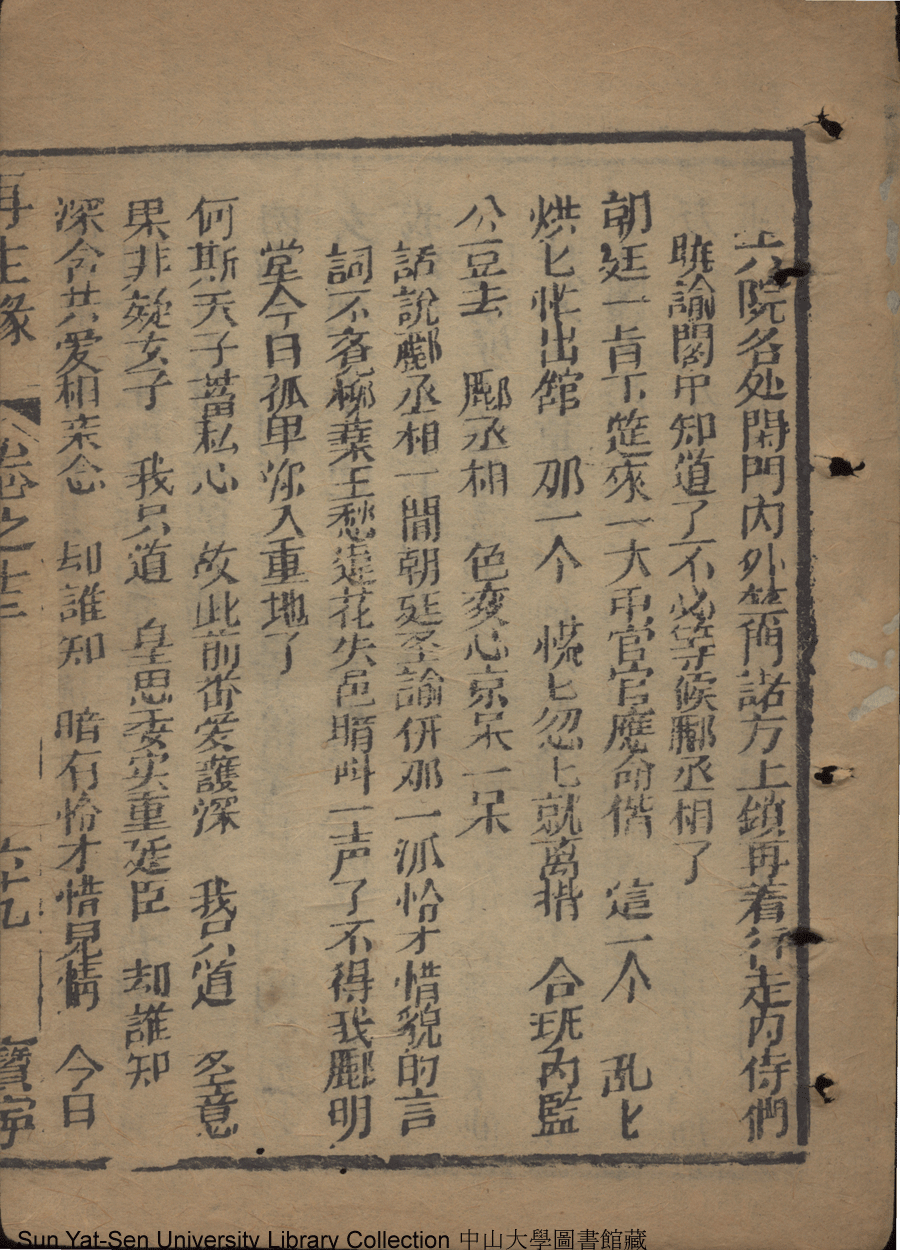 六院各处閉門内外竺简諸方上鎖再着行走内侍們
曉諭閣中知道了不必等候酈丞相了
朝廷一旨下筵來一大帀官官應命偕 這一个 乱匕
烘匕忙出舘 那一个 慌匕忽匕就离揩 合班內監
公豆去 酈丞相 色变心京呆一呆
話說酈丞相一聞朝廷圣諭併那一派怜才惜貌的言
詞不覔柳葉王愁蓮花失邑暗呌一声了不得我酈明
堂今日孤单你入重地了
何斯天子蓄私心 故此前番爱護深 我只道 圣意
果非疑女子 我只道 皇恩委实重廷臣 却誰知
深含共爱相亲念 却誰知 暗有怜才惜見情 今日
再生緣 卷之十三 六十九 寶寧
Sun Yat-Sen University Library Collection 中山大學圖書館藏